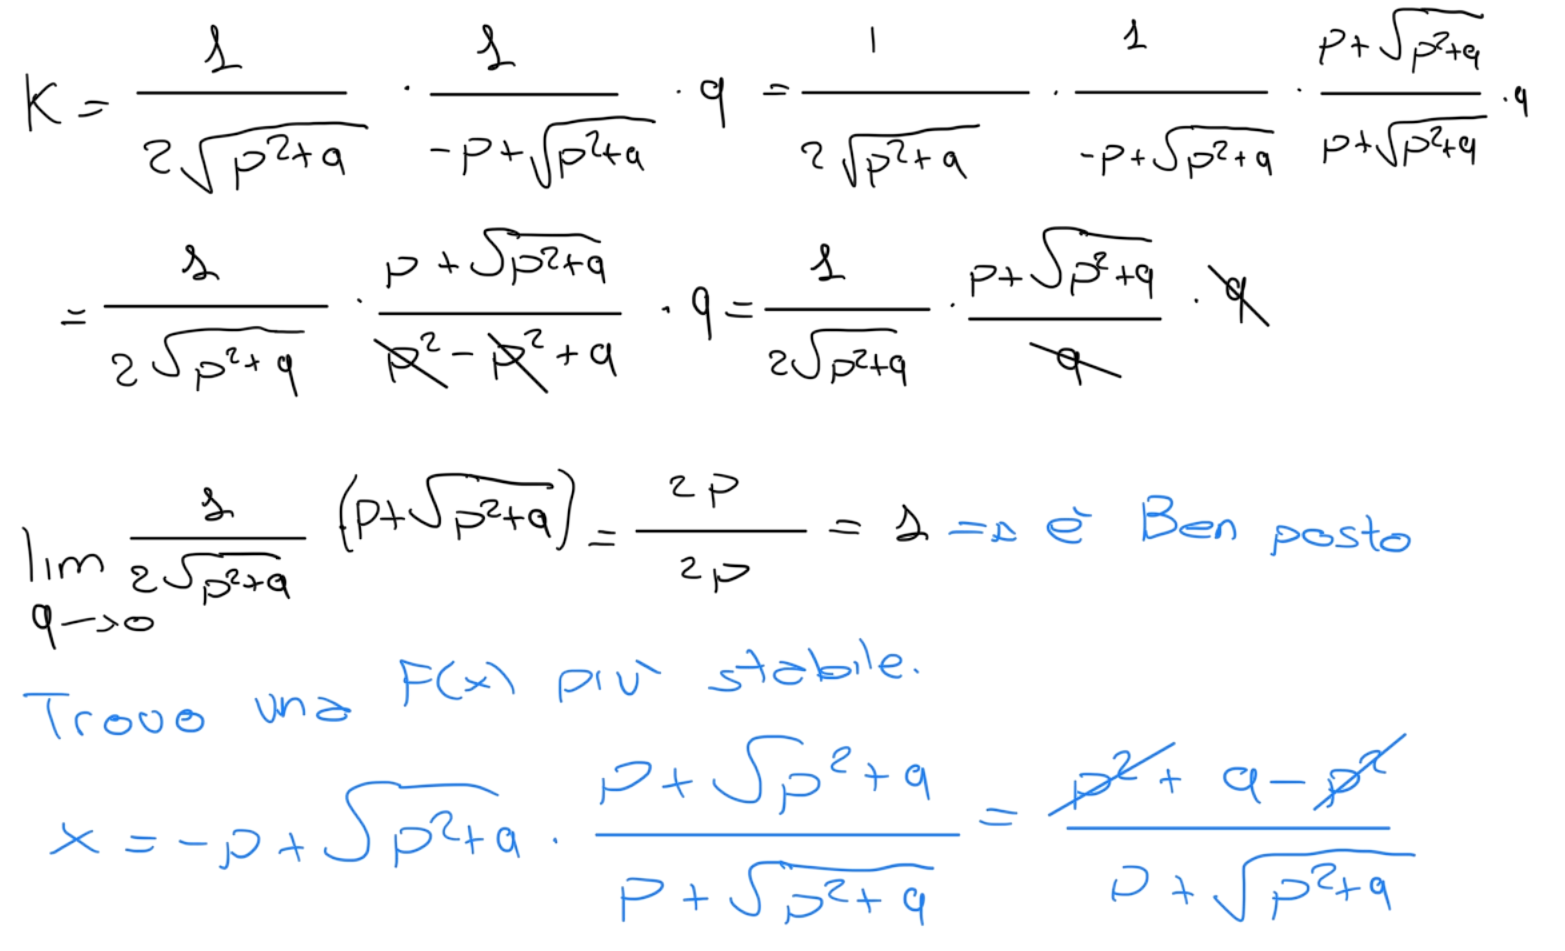 K = \frac{1}{2\sqrt{p^2+q}} \cdot \frac{1}{-p+\sqrt{p^2+q}} \cdot q = \frac{1}{2\sqrt{p^2+q}} \cdot \frac{1}{-p+\sqrt{p^2+q}} \cdot \frac{p+\sqrt{p^2+q}}{p+\sqrt{p^2+q}} \cdot q
= \frac{1}{2\sqrt{p^2+q}} \cdot \frac{p+\sqrt{p^2+q}}{\cancel{p^2}-\cancel{p^2}+q} \cdot q = \frac{1}{2\sqrt{p^2+q}} \cdot \frac{p+\sqrt{p^2+q}}{\cancel{q}} \cdot \cancel{q}
\lim_{q \to 0} \frac{1}{2\sqrt{p^2+q}} (p+\sqrt{p^2+q}) = \frac{2p}{2p} = 1 => è Ben posto
Trovo una F(x) più stabile.
x = -p+\sqrt{p^2+q} \cdot \frac{p+\sqrt{p^2+q}}{p+\sqrt{p^2+q}} = \frac{\cancel{p^2}+q-\cancel{p^2}}{p+\sqrt{p^2+q}}